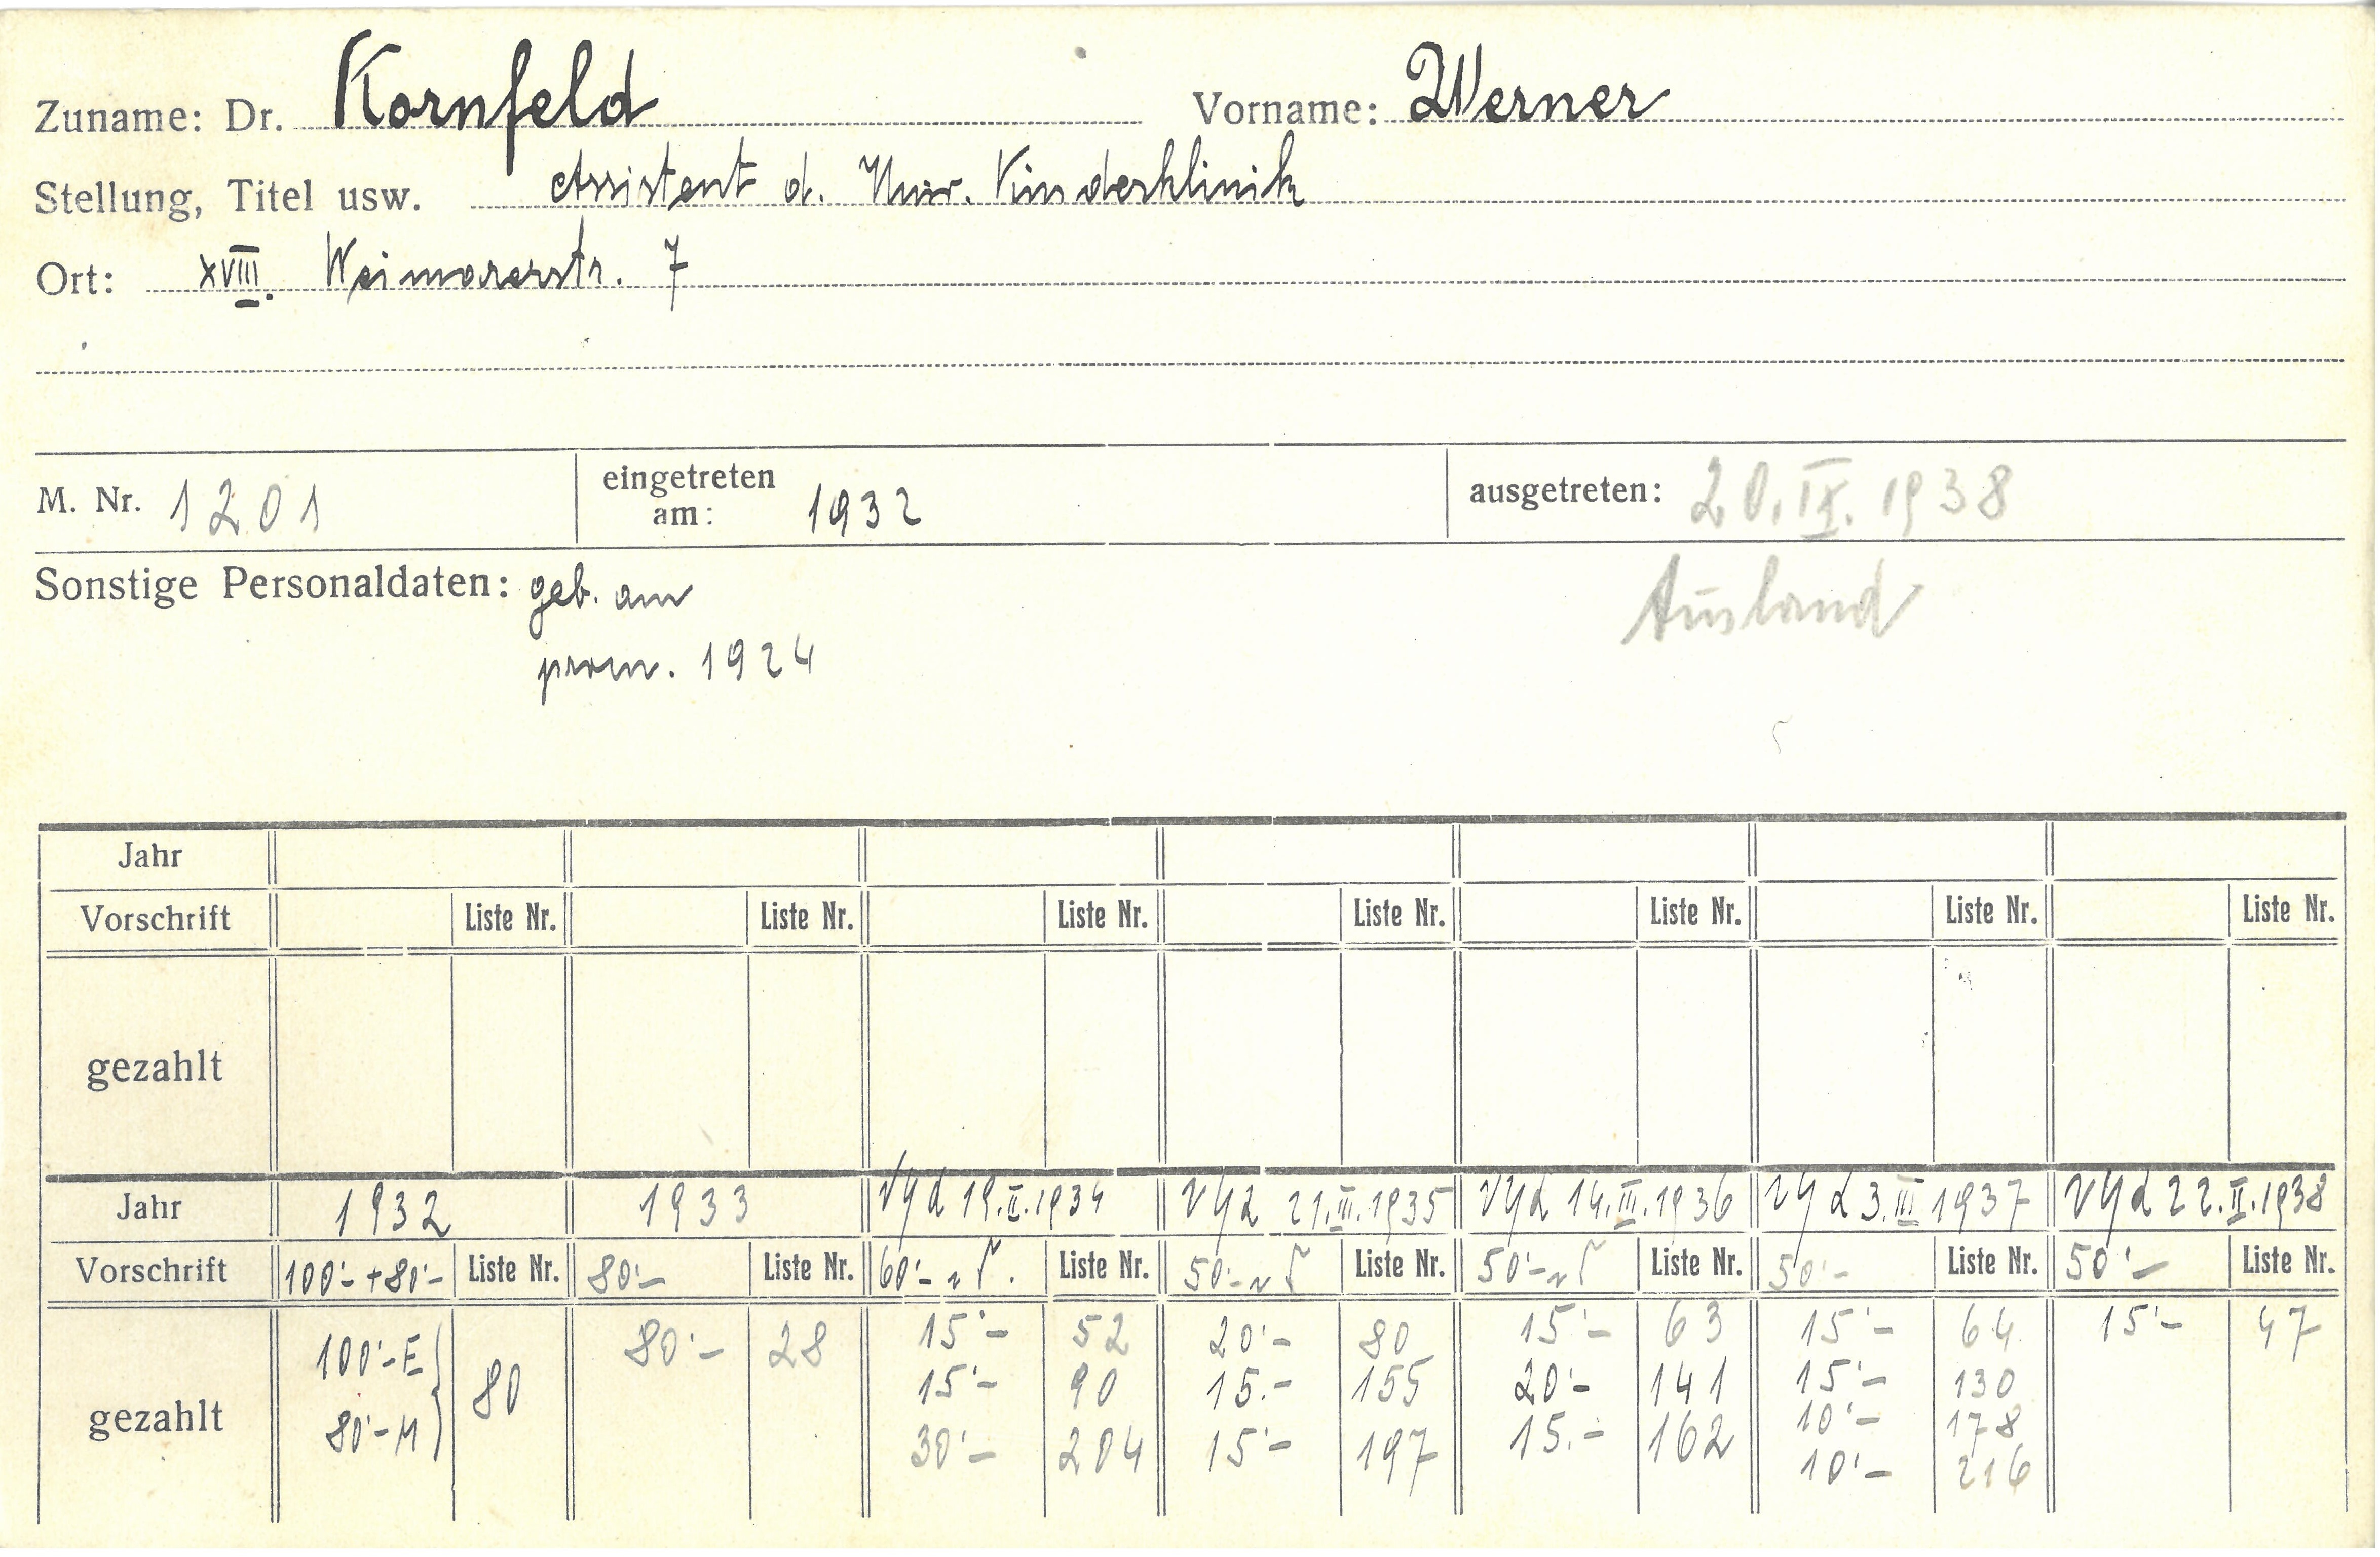 Zuname: Dr. Kornfeld Vorname: Werner
Stellung, Titel usw. Assistent d. Univ. Kinderklinik
Ort: XVIII. Weimarerstr. 7
M. Nr. 1201 eingetreten am: 1932 ausgetreten: 20. IX. 1938
Sonstige Personaldaten: geb. am Ausland
prom. 1924
Jahr
Vorschrift Liste Nr. Liste Nr. Liste Nr. Liste Nr. Liste Nr. Liste Nr. Liste Nr.
gezahlt
Jahr 1932 1933 19.II.1934 21.III.1935 14.III.1936 3.III 1937 22.II.1938
Vorschrift 100'- + 80'- Liste Nr. 80'- Liste Nr. 60'- Liste Nr. 50'- Liste Nr. 50'- Liste Nr. 50'- Liste Nr. 50'- Liste Nr.
gezahlt 100'- E 80 80'- 28 15'- 52 20'- 80 15'- 63 15'- 64 15'- 47
80'- M 15'- 90 15.- 155 20'- 141 15'- 130
30'- 204 15'- 197 15.- 162 10'- 178
10'- 216